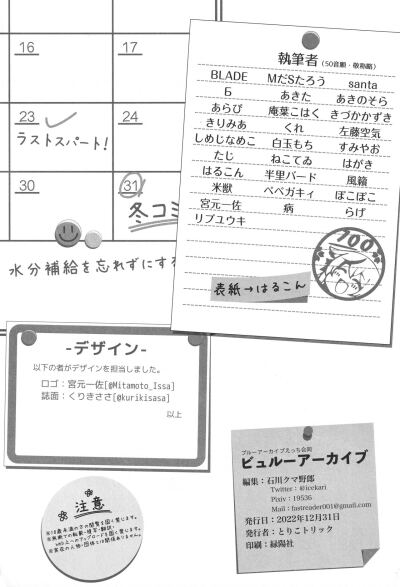 16
17
23
24
ラストスパート!
30
31
冬コミ
水分補給を忘れずにする
執筆者（50音順・敬称略）
BLADE MだSたろう santa
Б あきた あきのそら
あらび 庵葉こはく きづかかずき
きりみあ くれ 左藤空気
しめじなめこ 白玉もち すみやお
たじ ねこてゐ はがき
はるこん 半里バード 風籟
米獣 ベベガキィ ぽこぽこ
宮元一佐 病 らげ
リブユウキ
100
表紙→はるこん
-デザイン-
以下の者がデザインを担当しました。
ロゴ：宮元一佐[@Mitamoto_Issa]
誌面：くりきささ[@kurikisasa]
以上
注意
※18歳未満の方の閲覧を固く禁じます。
※無断での転載・複写・翻訳・
web上へのアップロードを固く禁じます。
※実在の人物・団体とは関係ありません。
ブルーアーカイブえっち合同
ビュルーアーカイブ
編集：石川クマ野郎
Twitter：@icekari
Pixiv：19536
Mail：fastreader001@gmail.com
発行日：2022年12月31日
発行者：とりこトリック
印刷：緑陽社